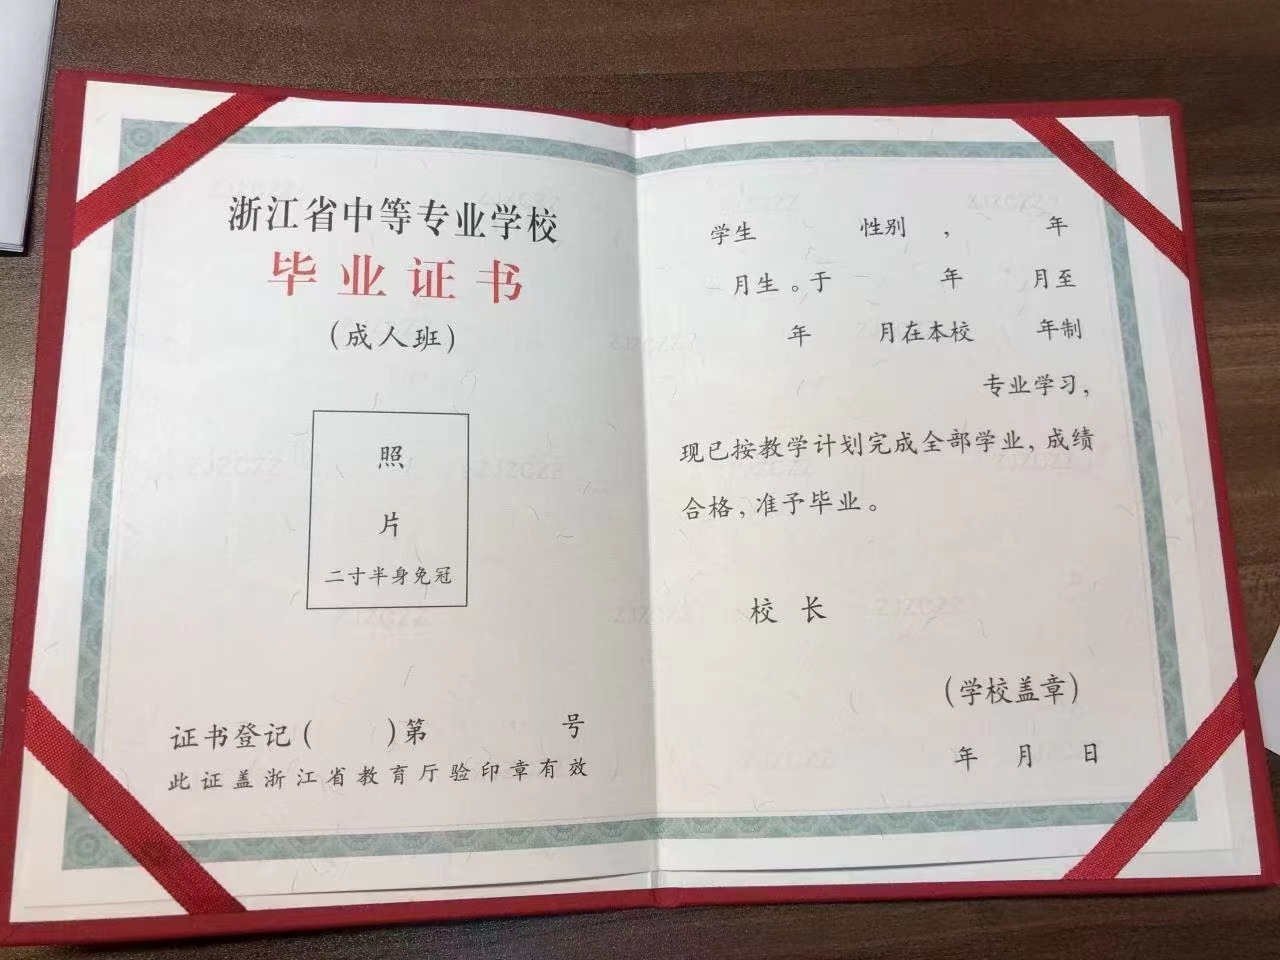 浙江省中等专业学校
毕业证书
(成人班)
照
片
二寸半身免冠
证书登记( )第 号
此证盖浙江省教育厅验印章有效
学生 性别 , 年
月生。于 年 月至
年 月在本校 年制
专业学习,
现已按教学计划完成全部学业,成绩
合格,准予毕业。
校 长
(学校盖章)
年 月 日
ZJZCZZ
ZJZCZZ
ZJZCZZ
ZJZCZZ
ZJZCZZ
ZJZCZZ
ZJZCZZ
ZJZCZZ
ZJZCZZ
ZJZCZZ
ZJZCZZ
ZJZCZZ